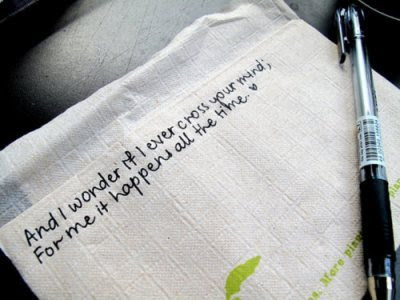 And I wonder if I ever cross your mind;
For me it happens all the time. ♥
More